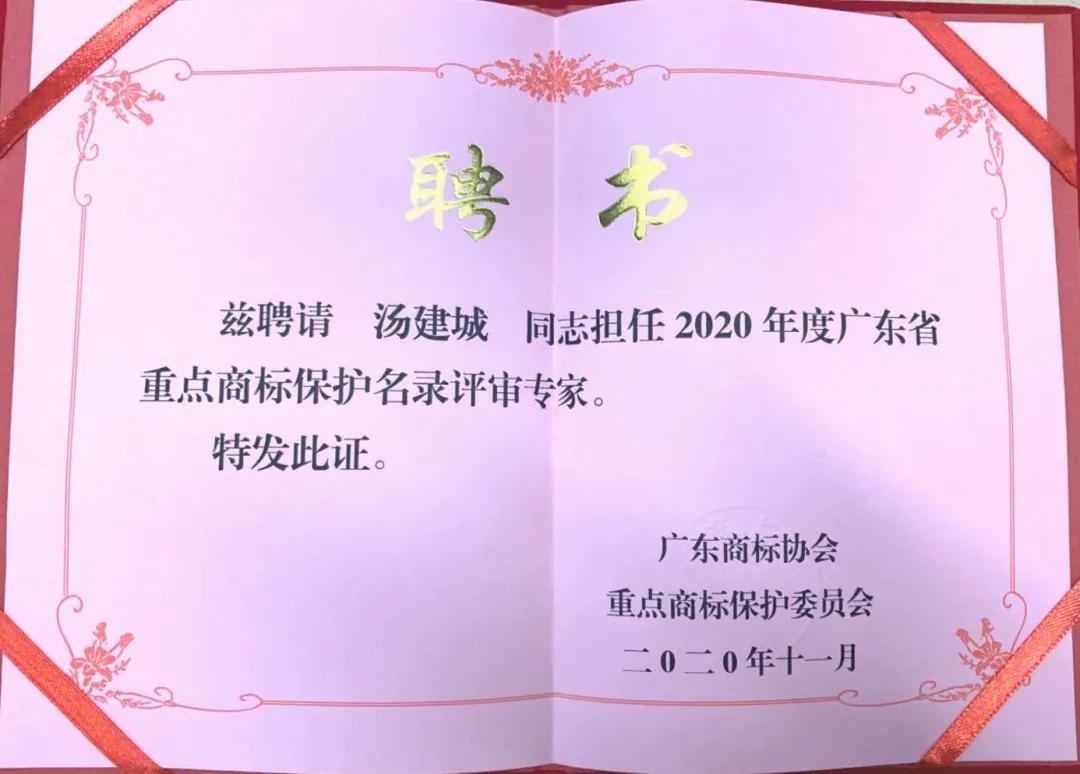 聘书
兹聘请 汤建城 同志担任2020年度广东省
重点商标保护名录评审专家。
特发此证。
广东商标协会
重点商标保护委员会
二0二0年十一月